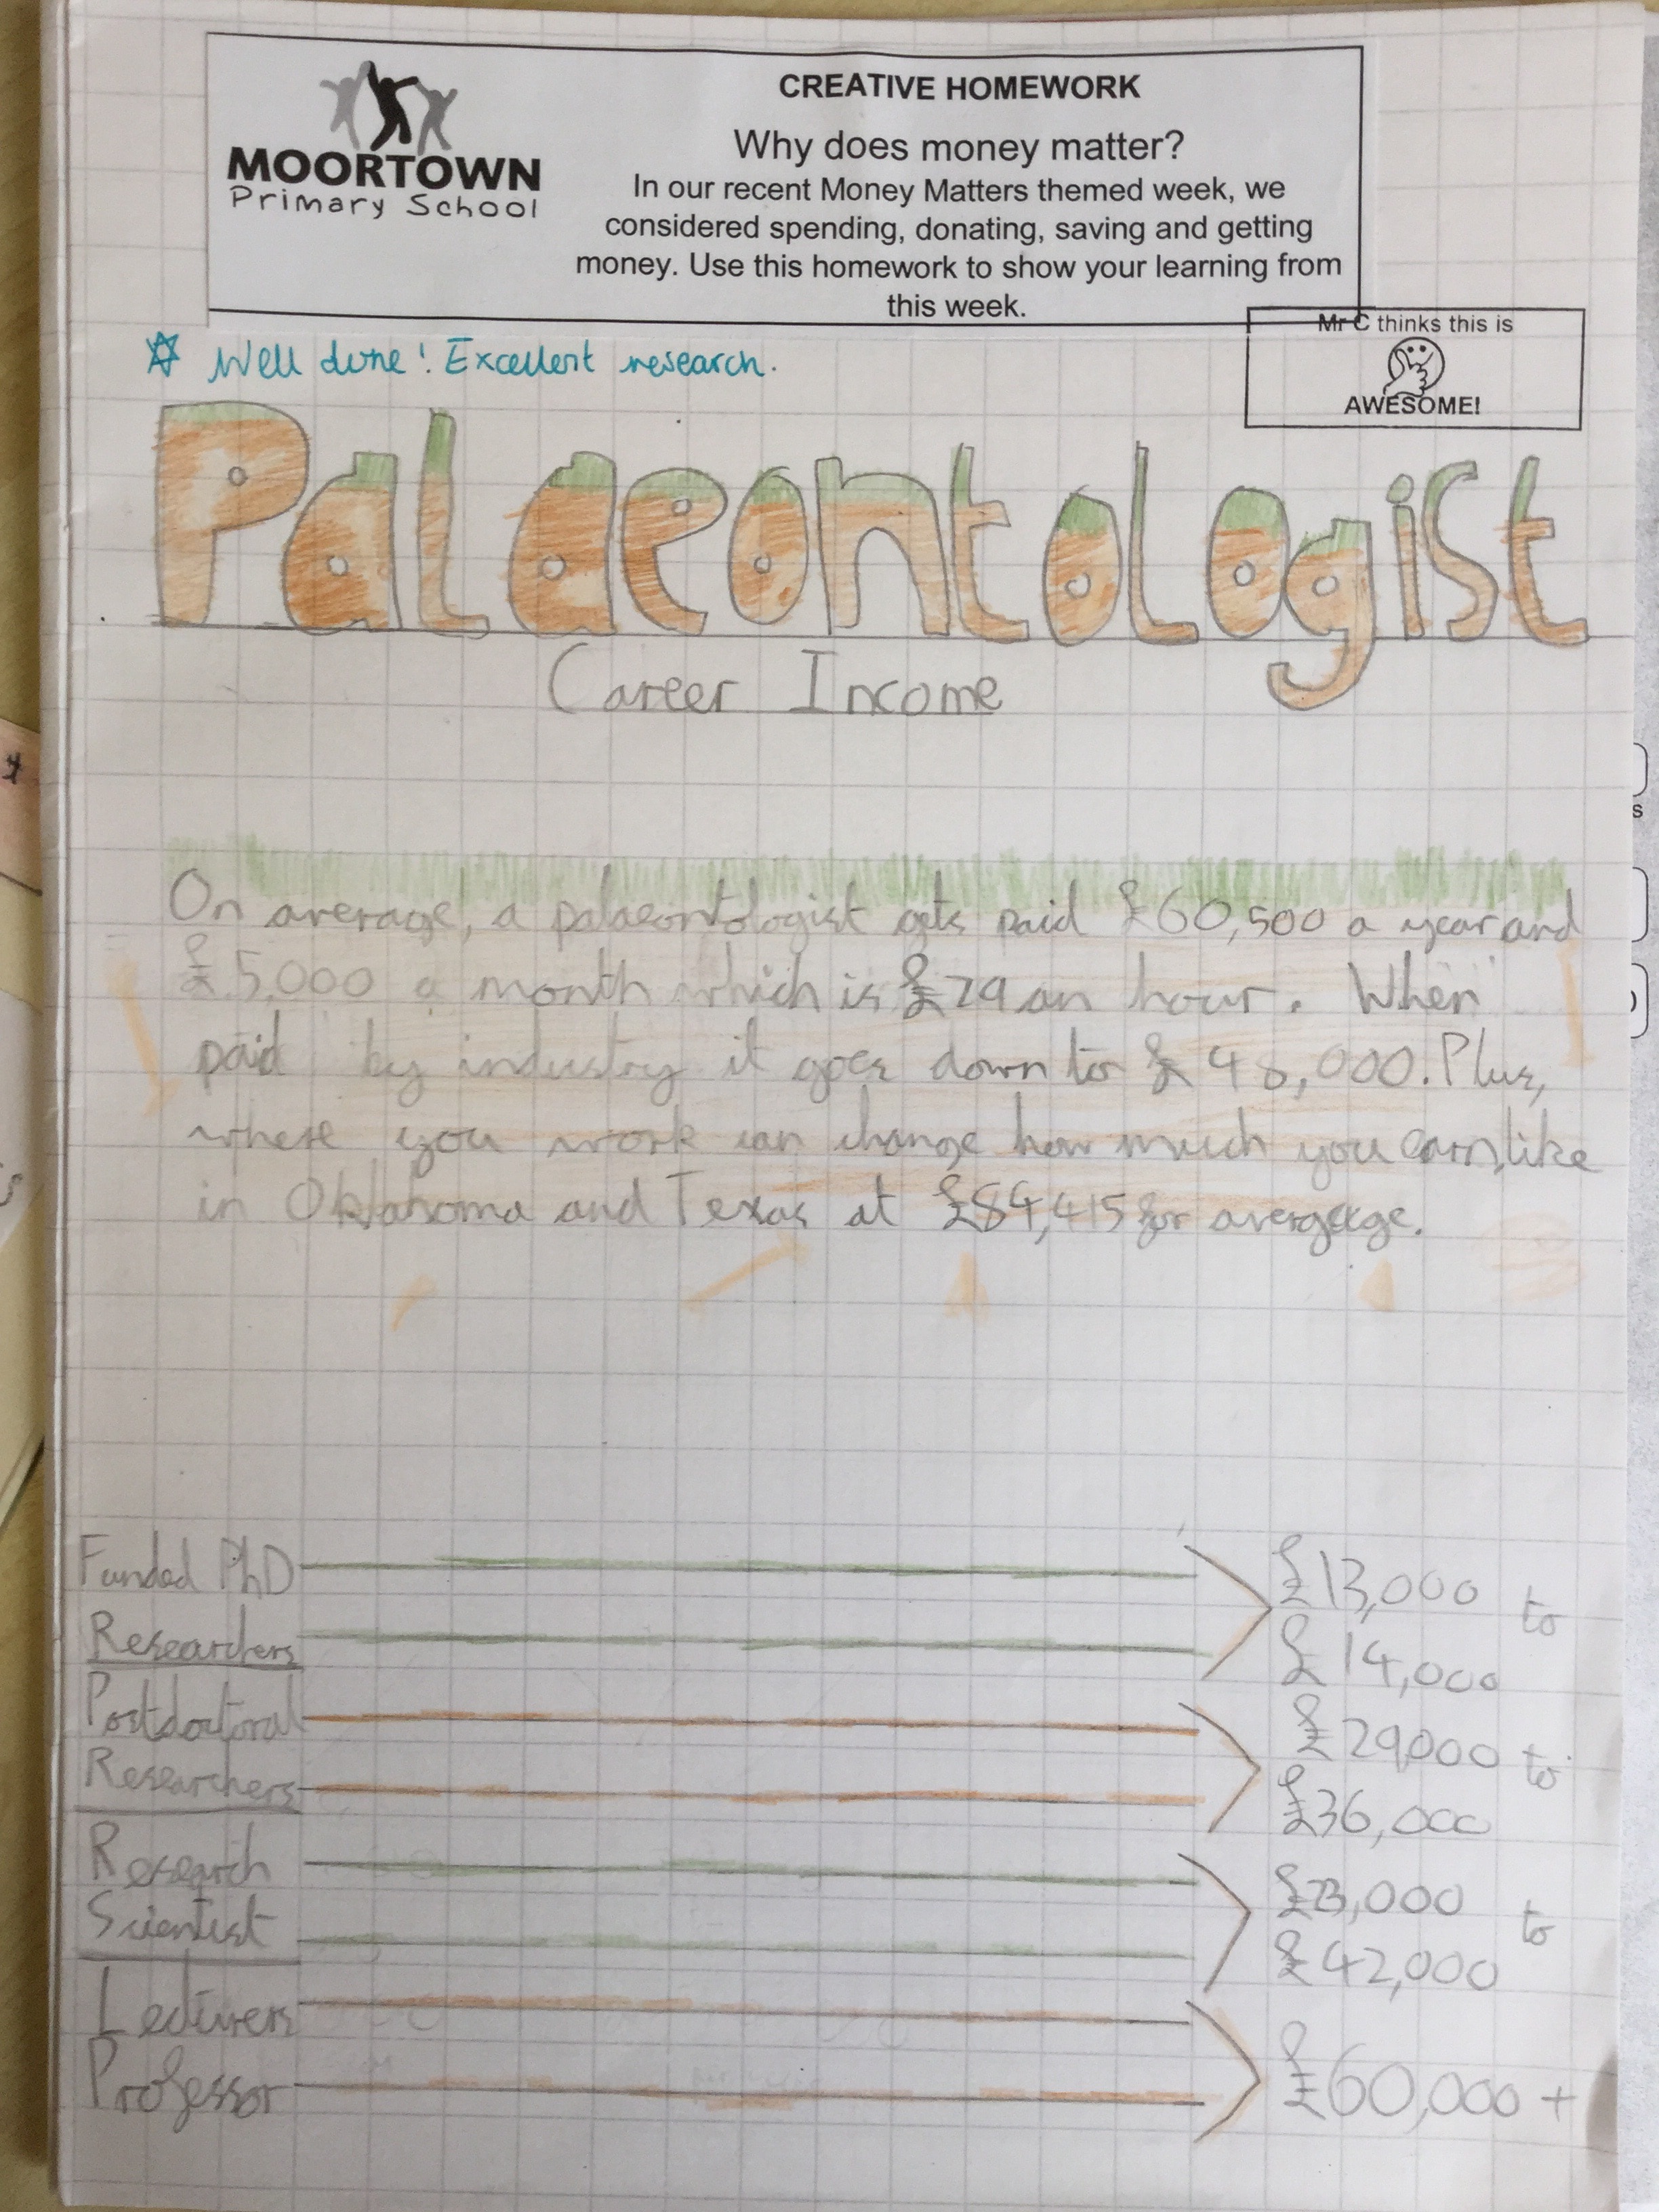 MOORTOWN
Primary School
CREATIVE HOMEWORK
Why does money matter?
In our recent Money Matters themed week, we
considered spending, donating, saving and getting
money. Use this homework to show your learning from
this week.
Mr C thinks this is
AWESOME!
Well done! Excellent research.
Palaeontologist
Career Income
On average, a palaeontologist gets paid £60,500 a year and
£5,000 a month which is £29 an hour. When
paid by industry it goes down to £48,000. Plus,
where you work can change how much you earn, like
in Oklahoma and Texas at £84,415 for average.
Funded PhD
Researchers
£13,000 to
£14,000
Postdoctoral
Researchers
£29,000 to
£36,000
Research
Scientist
£23,000 to
£42,000
Lecturers
Professor
£60,000 +